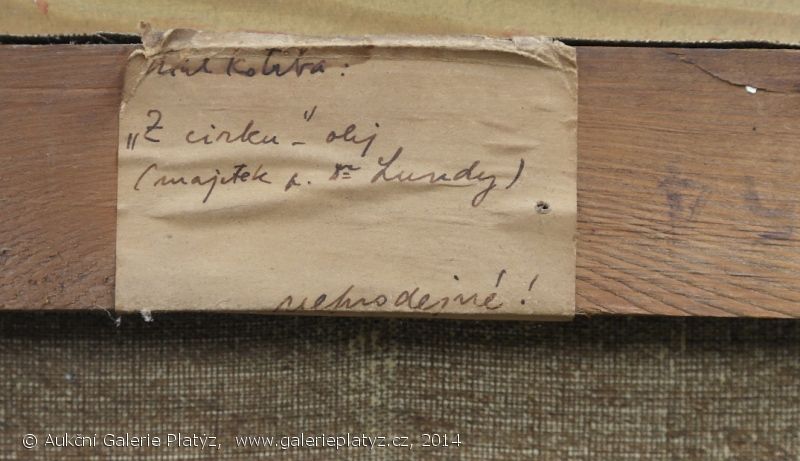 Kotrba :
„Z cirku" – olej
(majetek p. dr Lundy)
neprodejné !
© Aukční Galerie Platýz, www.galerieplatyz.cz, 2014